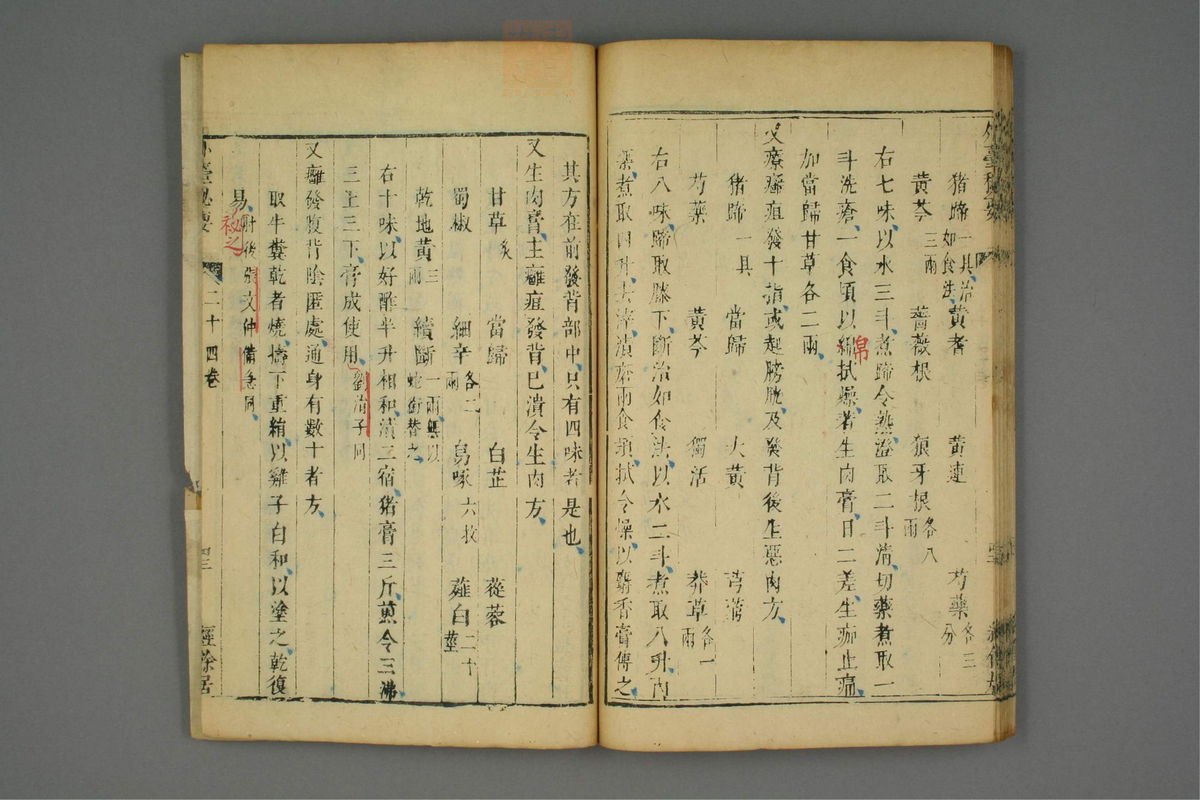 豬蹄一具治如食法 黃耆 黃連 芍藥各三分
黃芩三兩 薔薇根 狼牙根各八兩
右七味以水三斗煮蹄令熟澄取二斗清切藥煮取一
斗洗瘡一食頃以綿拭燥著生肉膏日二差生痂止痛
綿
加當歸甘草各二兩
又療癰疽發十指或起膀胱及發背後生惡肉方
豬蹄一具 當歸 大黃 芎藭
芍藥 黃芩 獨活 莽草各一兩
右八味蹄取膝下斷治如食法以水三斗煮取八升內
藥煮取四升去滓漬瘡兩食頃拭令燥以麝香膏傅之
其方在前發背部中只有四味者是也
又生肉膏主癰疽發背已潰令生肉方
甘草炙 當歸 白芷 蓯蓉
蜀椒 細辛各二兩 烏喙六枚 薤白二十莖
乾地黃三兩 續斷一兩無以蛇銜替之
右十味以好醋半升相和漬二宿豬膏三斤煎令三沸
三上三下膏成使用劉涓子同
又癰發腹背陰匿處通身有數十者方
取牛糞乾者燒擣下重絹以雞子白和以塗之乾復
易肘後張文仲備急同
秘之
外臺秘要 二十四卷 四三 經餘居